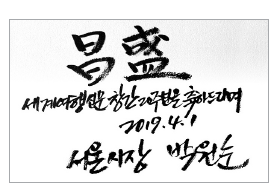 昌盛
세계여행신문 창간 20주년을 축하드리며
2019.4.1
서울시장 박원순